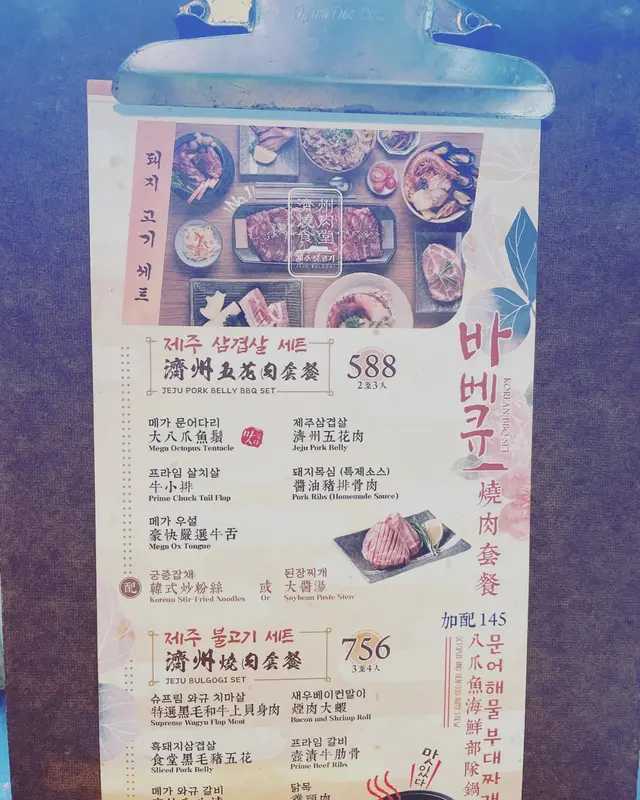 돼지 고기 세트
No.1!
濟州
燒肉
食堂
제주 불고기
JEJU BULGOGI
바베큐
KOREAN BBQ SET
燒肉套餐
제주 삼겹살 세트
濟州五花肉套餐
JEJU PORK BELLY BBQ SET
588
2至3人
메가 문어다리
大八爪魚鬚
Mega Octopus Tentacle
제주삼겹살
濟州五花肉
Jeju Pork Belly
프라임 살치살
牛小排
Prime Chuck Tail Flap
돼지목심 (특제소스)
醬油豬排骨肉
Pork Ribs (Homemade Sauce)
메가 우설
豪快嚴選牛舌
Mega Ox Tongue
配
궁중잡채
韓式炒粉絲
Korean Stir-Fried Noodles
或
Or
된장찌개
大醬湯
Soybean Paste Stew
加配 145
문어해물부대찌개
八爪魚海鮮部隊鍋
제주 불고기 세트
濟州燒肉套餐
JEJU BULGOGI SET
756
3至4人
슈프림 와규 치마살
特選黑毛和牛上貝身肉
Supreme Wagyu Flap Meat
새우베이컨말이
煙肉大蝦
Bacon and Shrimp Roll
흑돼지삼겹살
食堂黑毛豬五花
Sliced Pork Belly
프라임 갈비
壺漬牛肋骨
Prime Beef Ribs
메가 와규 갈비
닭목
雞頸肉
맛있다